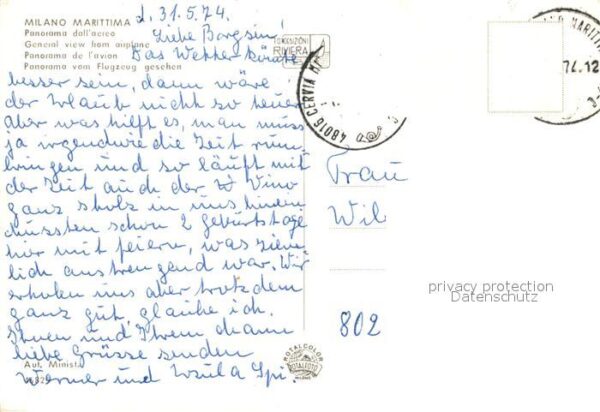 MILANO MARITTIMA
Panorama dall'aereo
General view from airplane
Panorama de l'avion
Panorama vom Flugzeug gesehen
d. 31.5.74.
Liebe Bargsin!
Das Wetter könnte
besser sein, dann wäre
der Urlaub nicht so teuer
aber was hilft es, man muss
ja irgendwie die Zeit rum
bringen und so läuft mit
der Zeit auch der Vino
ganz stolz in uns hinein
mussten schon 2 Geburtstage
hier mit feiern, was ziem
lich anstrengend war. Wir
erholen uns aber trotzdem
ganz gut, glaube ich.
Ihnen und Ihrem Mann
liebe Grüsse senden
Werner und Ursula
Aut. Minist
EDIZIONI
RIVIERA
48016 CERVIA
MARITTI
74.12
Frau
Wil
802
privacy protection
Datenschutz
ROTALCOLOR
ROTALFOTO